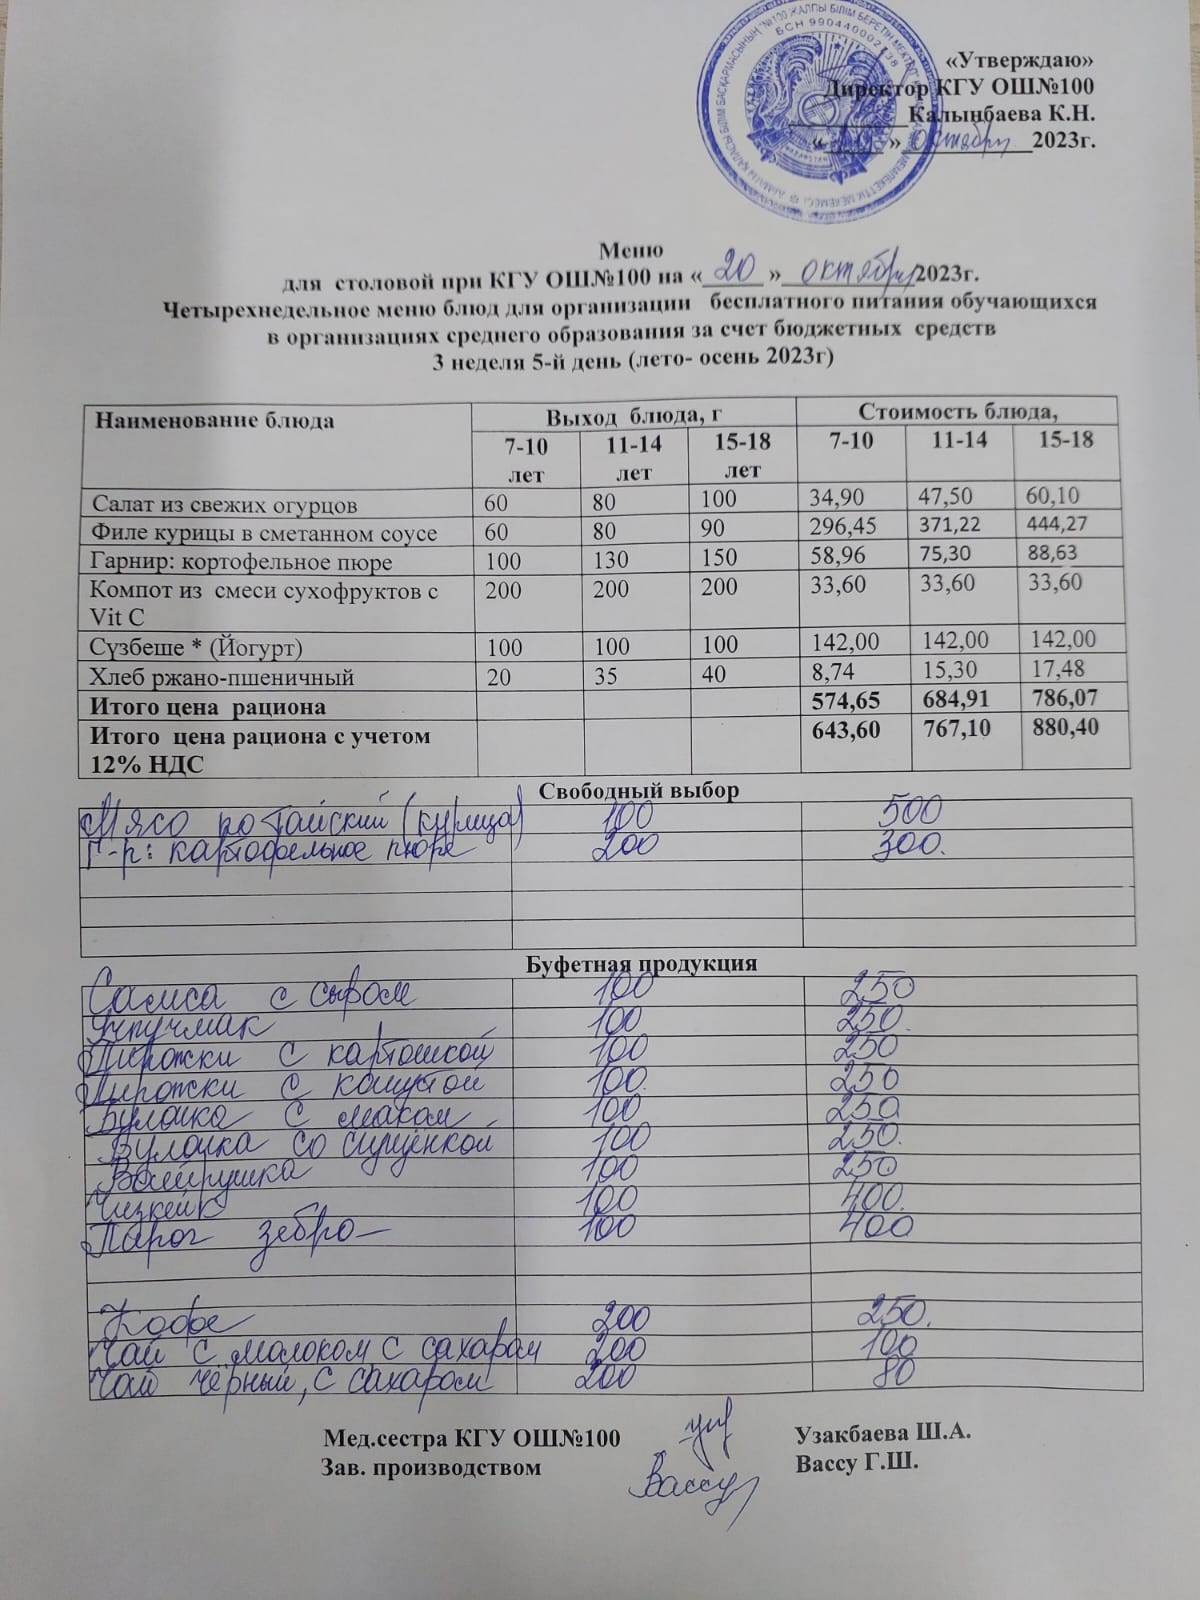 БСН 990440002138
«Утверждаю»
Директор КГУ ОШ№100
Калынбаева К.Н.
« » октября 2023г.
Меню
для столовой при КГУ ОШ№100 на « 20 » октября 2023г.
Четырехнедельное меню блюд для организации бесплатного питания обучающихся
в организациях среднего образования за счет бюджетных средств
3 неделя 5-й день (лето- осень 2023г)
Наименование блюда Выход блюда, г Стоимость блюда,
7-10 лет 11-14 лет 15-18 лет 7-10 11-14 15-18
Салат из свежих огурцов 60 80 100 34,90 47,50 60,10
Филе курицы в сметанном соусе 60 80 90 296,45 371,22 444,27
Гарнир: кортофельное пюре 100 130 150 58,96 75,30 88,63
Компот из смеси сухофруктов с 200 200 200 33,60 33,60 33,60
Vit C
Сүзбеше * (Йогурт) 100 100 100 142,00 142,00 142,00
Хлеб ржано-пшеничный 20 35 40 8,74 15,30 17,48
Итого цена рациона 574,65 684,91 786,07
Итого цена рациона с учетом 643,60 767,10 880,40
12% НДС
Свободный выбор
Мясо по тайский (курица) 100 500
Г-р: картофельное пюре 200 300.
Буфетная продукция
Самса с сыром 100 250
Учпучмак 100 250.
Пирожки с картошкой 100 250
Пирожки с капустой 100. 250
Булочка с маком 100 250
Булочка со сгущенкой 100 250.
Ватрушка 100 250
Чизкейк 100 400.
Пирог зебро 100 400
Кофе 200 250.
Чай с молоком с сахаром 200 100
Чай чёрный, с сахаром 200 80
Мед.сестра КГУ ОШ№100 Узакбаева Ш.А.
Зав. производством Вассу Вассу Г.Ш.